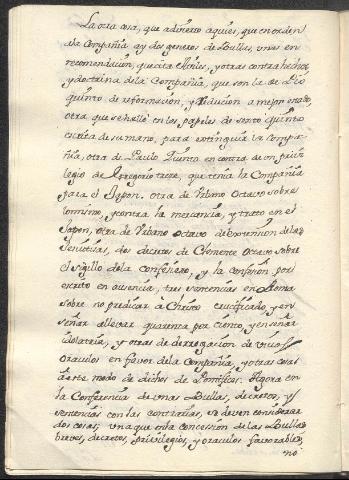 La otra cosa, que advierto aqui es, que en orden
a la Compañia ay dos generos de Bullas, unas en
recomendacion, que cita Moñes, y otras contra hechos,
y doctrina de la Compañia, que son la de Pio
quinto de reformacion, y reducion a mejor estado,
otra que se halló en los papeles de sexto quinto
escrita de su mano, para extinguir la Compa-
ñia, otra de Paulo Quinto en contra de un privi-
legio de Gregorio treze, que tenia la Compañia
para el Japon, otra de Urbano Octavo sobre
lo mismo, y contra la mercancia, y trato en el
Japon, otra de Urbano Octavo de extincion de las
Jesuitisas, dos decretos de Clemente Octavo sobre
el sigillo de la confession, y la confesion por
escrito en ausencia, tres sentencias en Roma
sobre no predicar à Christo crucificado, y en
señar a llevar quarenta por ciento, y enseñar
idolatria, y otras de derogacion de vivos
oraculos en favor de la Compañia, y otras cosas
a este modo de dichos de Pontifices. Agora en
la Conferencia de unas Bullas, decretos, y
sentencias con las contrarias, se deven considerar
dos cosas; una que en la concession de las Bullas
breves, decretos, privilegios, y oraculos favorables,
no